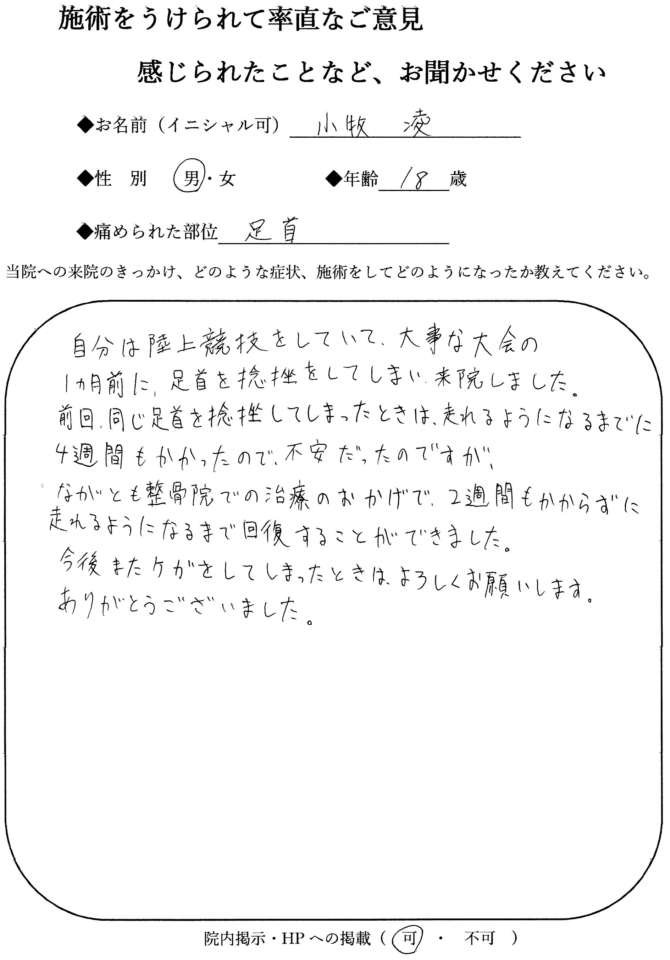 施術をうけられて率直なご意見
感じられたことなど、お聞かせください
◆お名前（イニシャル可） 小牧 凌
◆性 別 男・女 ◆年齢 18 歳
◆痛められた部位 足首
当院への来院のきっかけ、どのような症状、施術をしてどのようになったか教えてください。
自分は陸上競技をしていて、大事な大会の
1ヵ月前に、足首を捻挫をしてしまい、来院しました。
前回、同じ足首を捻挫してしまったときは、走れるようになるまでに
4週間もかかったので、不安だったのですが、
ながとも整骨院での治療のおかげで、2週間もかからずに
走れるようになるまで回復することができました。
今後またケガをしてしまったときは、よろしくお願いします。
ありがとうございました。
院内掲示・HPへの掲載（ 可 ・ 不可 ）